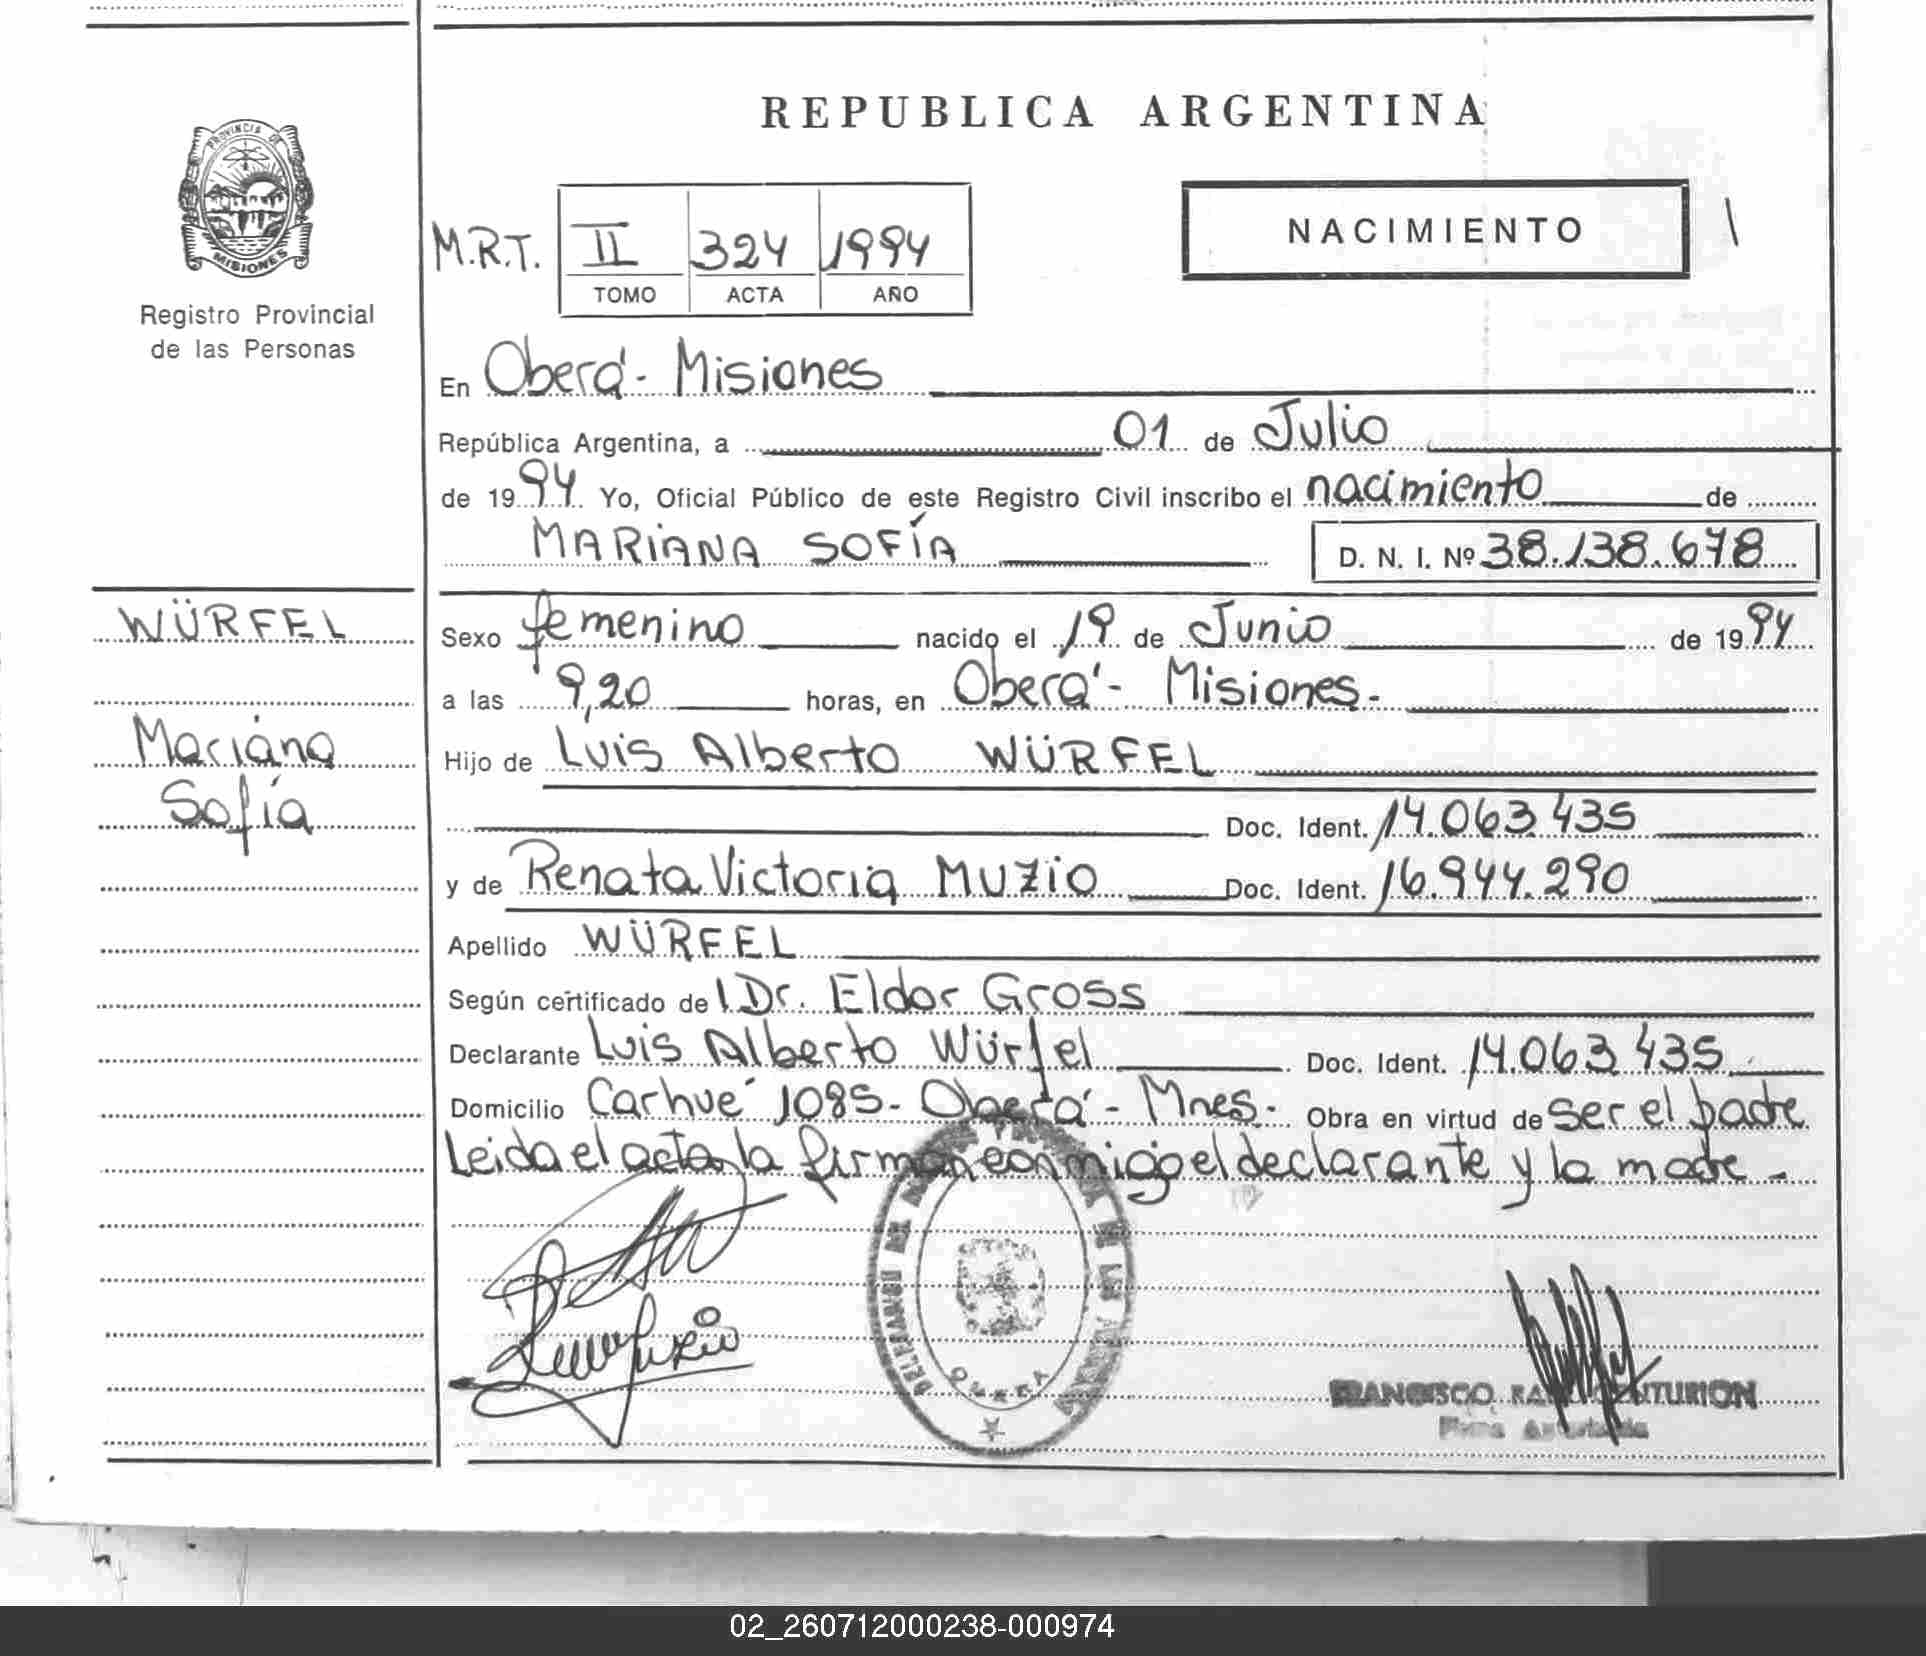 REPUBLICA ARGENTINA
PROVINCIA DE
MISIONES
Registro Provincial
de las Personas
M.R.T. II 324 1994
TOMO ACTA AÑO
NACIMIENTO
En Oberá - Misiones
República Argentina, a 01 de Julio
de 1994 Yo, Oficial Público de este Registro Civil inscribo el nacimiento de
MARIANA SOFÍA D. N. I. Nº 38.138.678
WÜRFEL
Mariana
Sofía
Sexo femenino nacido el 19 de Junio de 1994
a las 9,20 horas, en Oberá - Misiones.
Hijo de Luis Alberto WÜRFEL
Doc. Ident. 14.063.435
y de Renata Victoria MUZIO Doc. Ident. 16.944.290
Apellido WÜRFEL
Según certificado del Dr. Eldor Gross
Declarante Luis Alberto Würfel Doc. Ident. 14.063.435
Domicilio Carhué 1085 - Oberá - Mnes. Obra en virtud de ser el padre
Leida el acta la firman conmigo el declarante y la madre -
OBERA
FRANCISCO CENTURION
Firma Autorizada
02_260712000238-000974